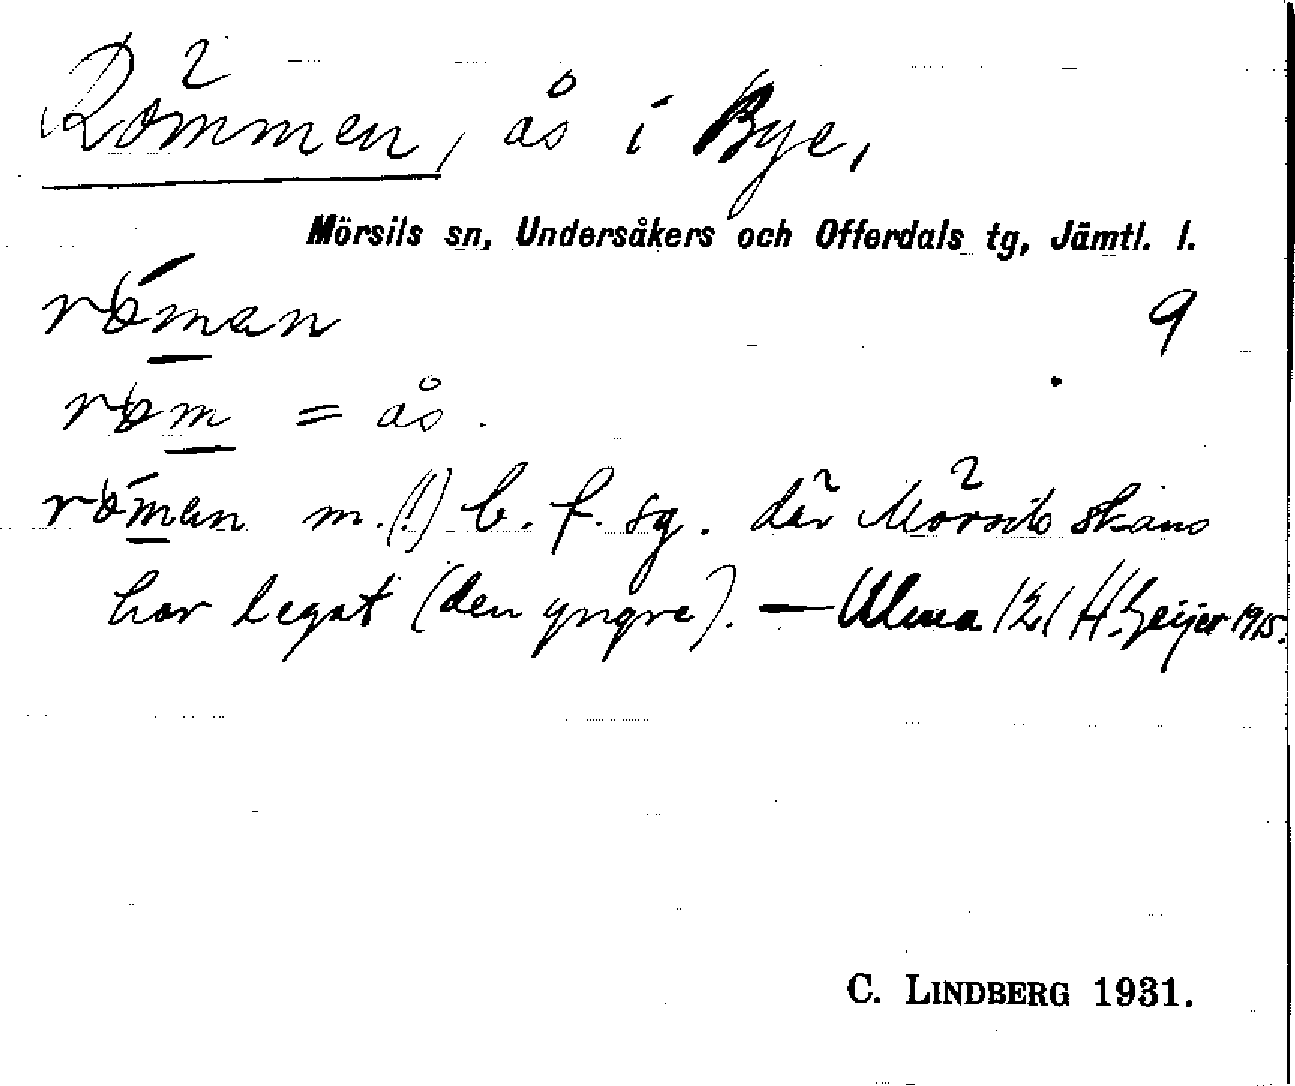 Römmen, ås i Bye,
Mörsils sn, Undersåkers och Offerdals tg, Jämtl. l.
röman 9
röm = ås.
röman m. (!) b. f. sg. där Mörsils skans
har legat (den yngre). — Ulma 121 H. Geijer 1915.
C. LINDBERG 1931.